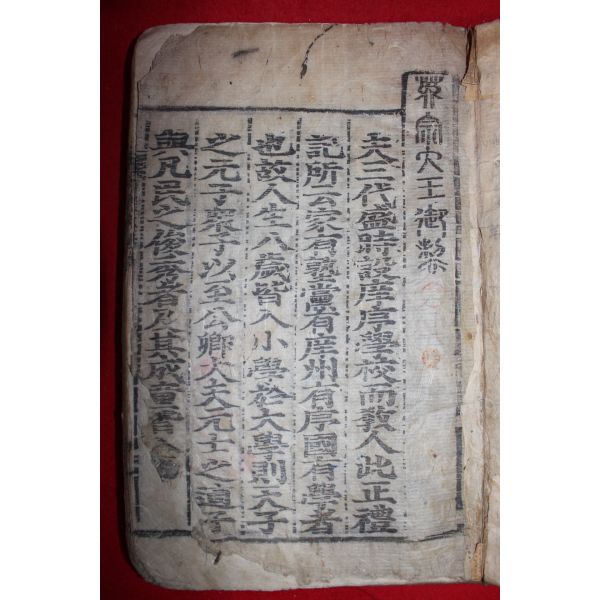 英宗大王御製
夫三代盛時設庠序學校而敎人此正禮
記所云家有塾黨有庠州有序國有學者
也故人生八歲皆入小學於大學則天子
之元子衆子以至公卿大夫元士之適子
與凡民之俊秀者及其成童皆入